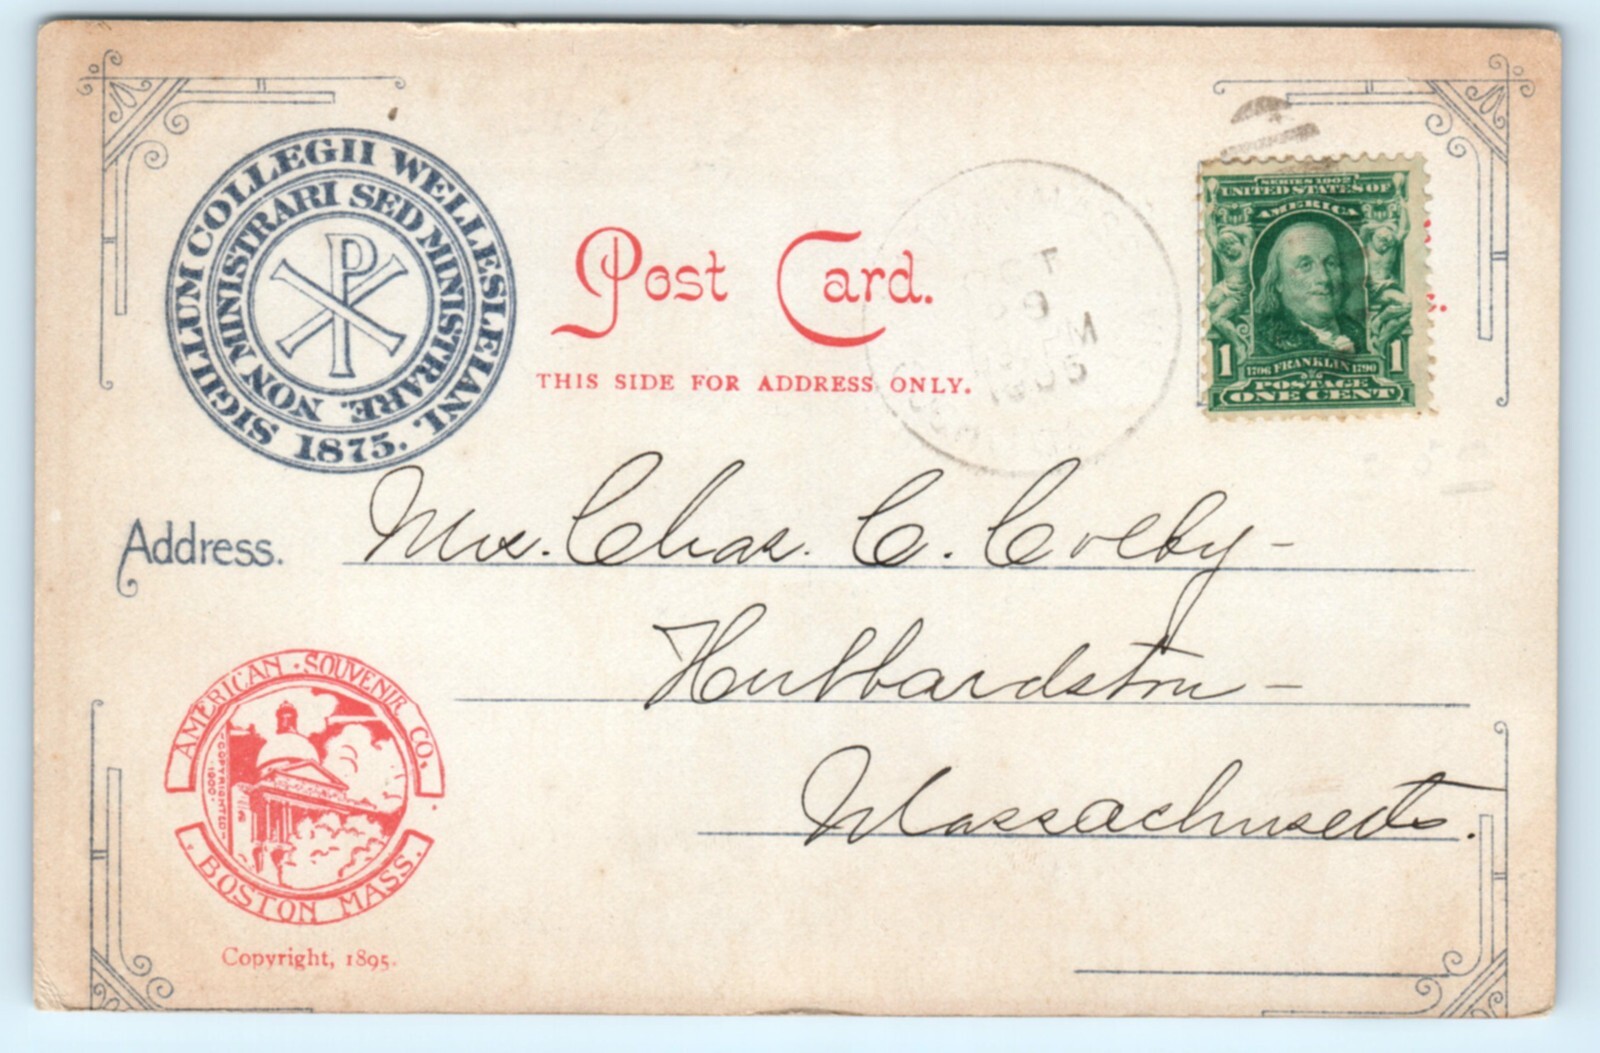 SIGILLUM COLLEGII WELLESLEIANI.
1875.
NON MINISTRARI SED MINISTRARE.
Post Card.
THIS SIDE FOR ADDRESS ONLY.
SERIES 1902
UNITED STATES OF
AMERICA
1 1706 FRANKLIN 1790 1
POSTAGE
ONE CENT
Address. Mrs. Chas. C. Colby -
Hubbardston -
Massachusetts.
AMERICAN SOUVENIR CO,
COPYRIGHTED
1900
BOSTON MASS.
Copyright, 1895.